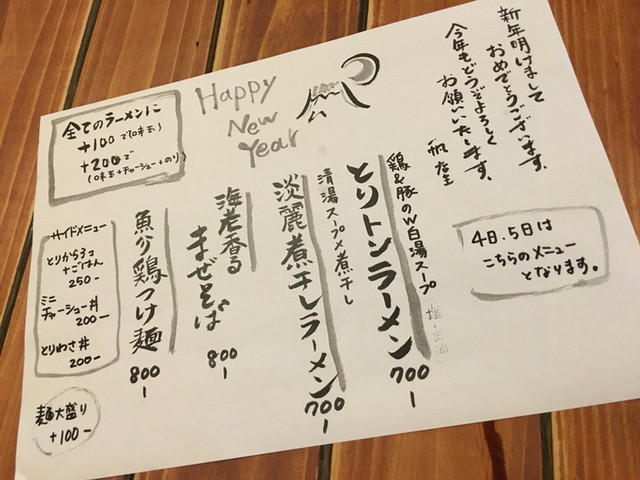 新年明けまして
おめでとうございます。
今年もどうぞよろしく
お願いいたします。
店主
Happy
New
Year
4日.5日は
こちらのメニュー
となります。
鶏&豚のW白湯スープ
とりトンラーメン
塩・正油
700-
清湯スープ×煮干し
淡麗煮干しラーメン
700-
海老香る
まぜそば
800-
魚介鶏つけ麺
800-
全てのラーメンに
+100で(味玉)
+200で
(味玉+チャーシュー+のり)
サイドメニュー
とりから3コ
+ごはん
250-
ミニ
チャーシュー丼
200-
とりわさ丼
200-
麺大盛り
+100-